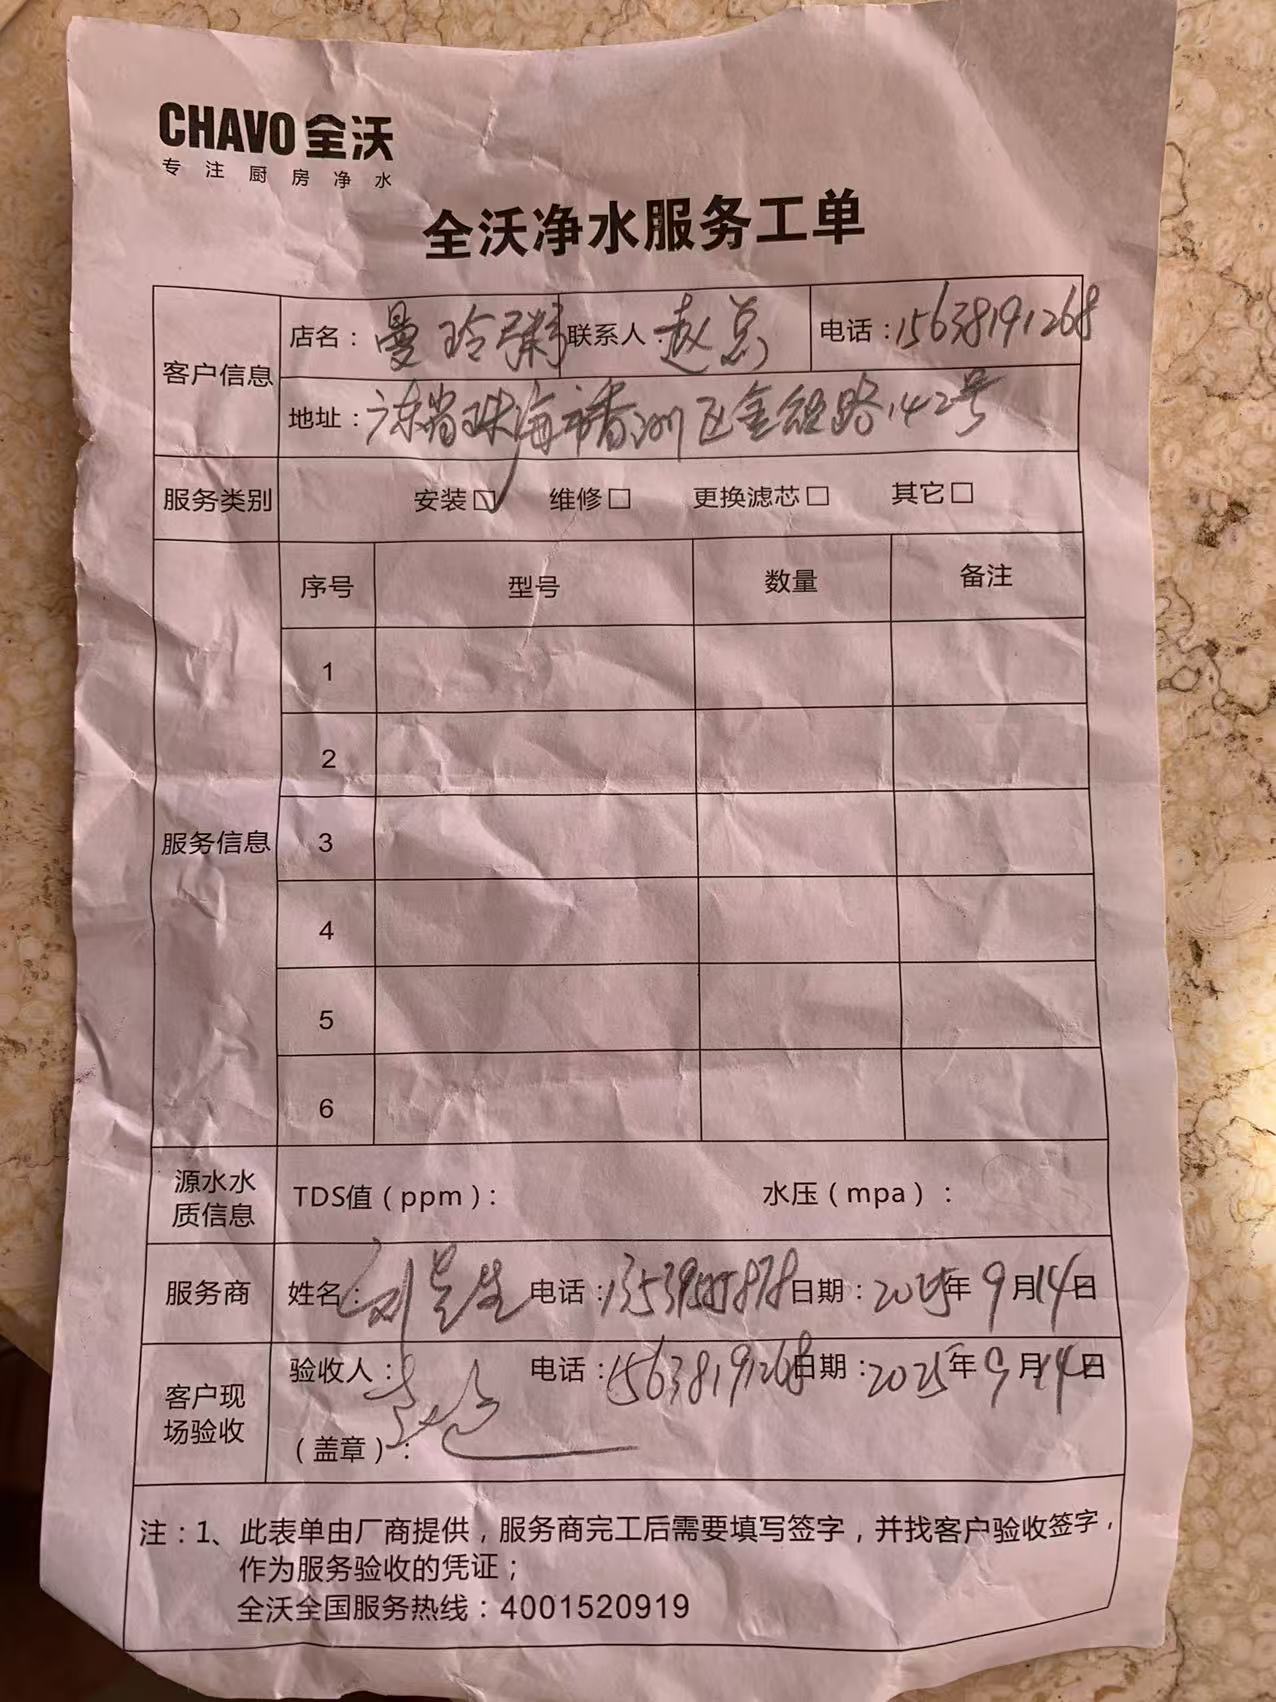 CHAVO 全沃
专注厨房净水
全沃净水服务工单
客户信息
店名：曼玲粥 联系人：赵总 电话：15638191268
地址：广东省珠海市香洲区金 路142号
服务类别 安装□ 维修□ 更换滤芯□ 其它□
服务信息
序号 型号 数量 备注
1
2
3
4
5
6
源水水质信息 TDS值（ppm）： 水压（mpa）：
服务商 姓名：刘先生 电话： 日期：2025年9月14日
客户现场验收 验收人： 电话：15638191268 日期：2025年9月14日
（盖章）：
注：1、此表单由厂商提供，服务商完工后需要填写签字，并找客户验收签字，
作为服务验收的凭证；
全沃全国服务热线：4001520919